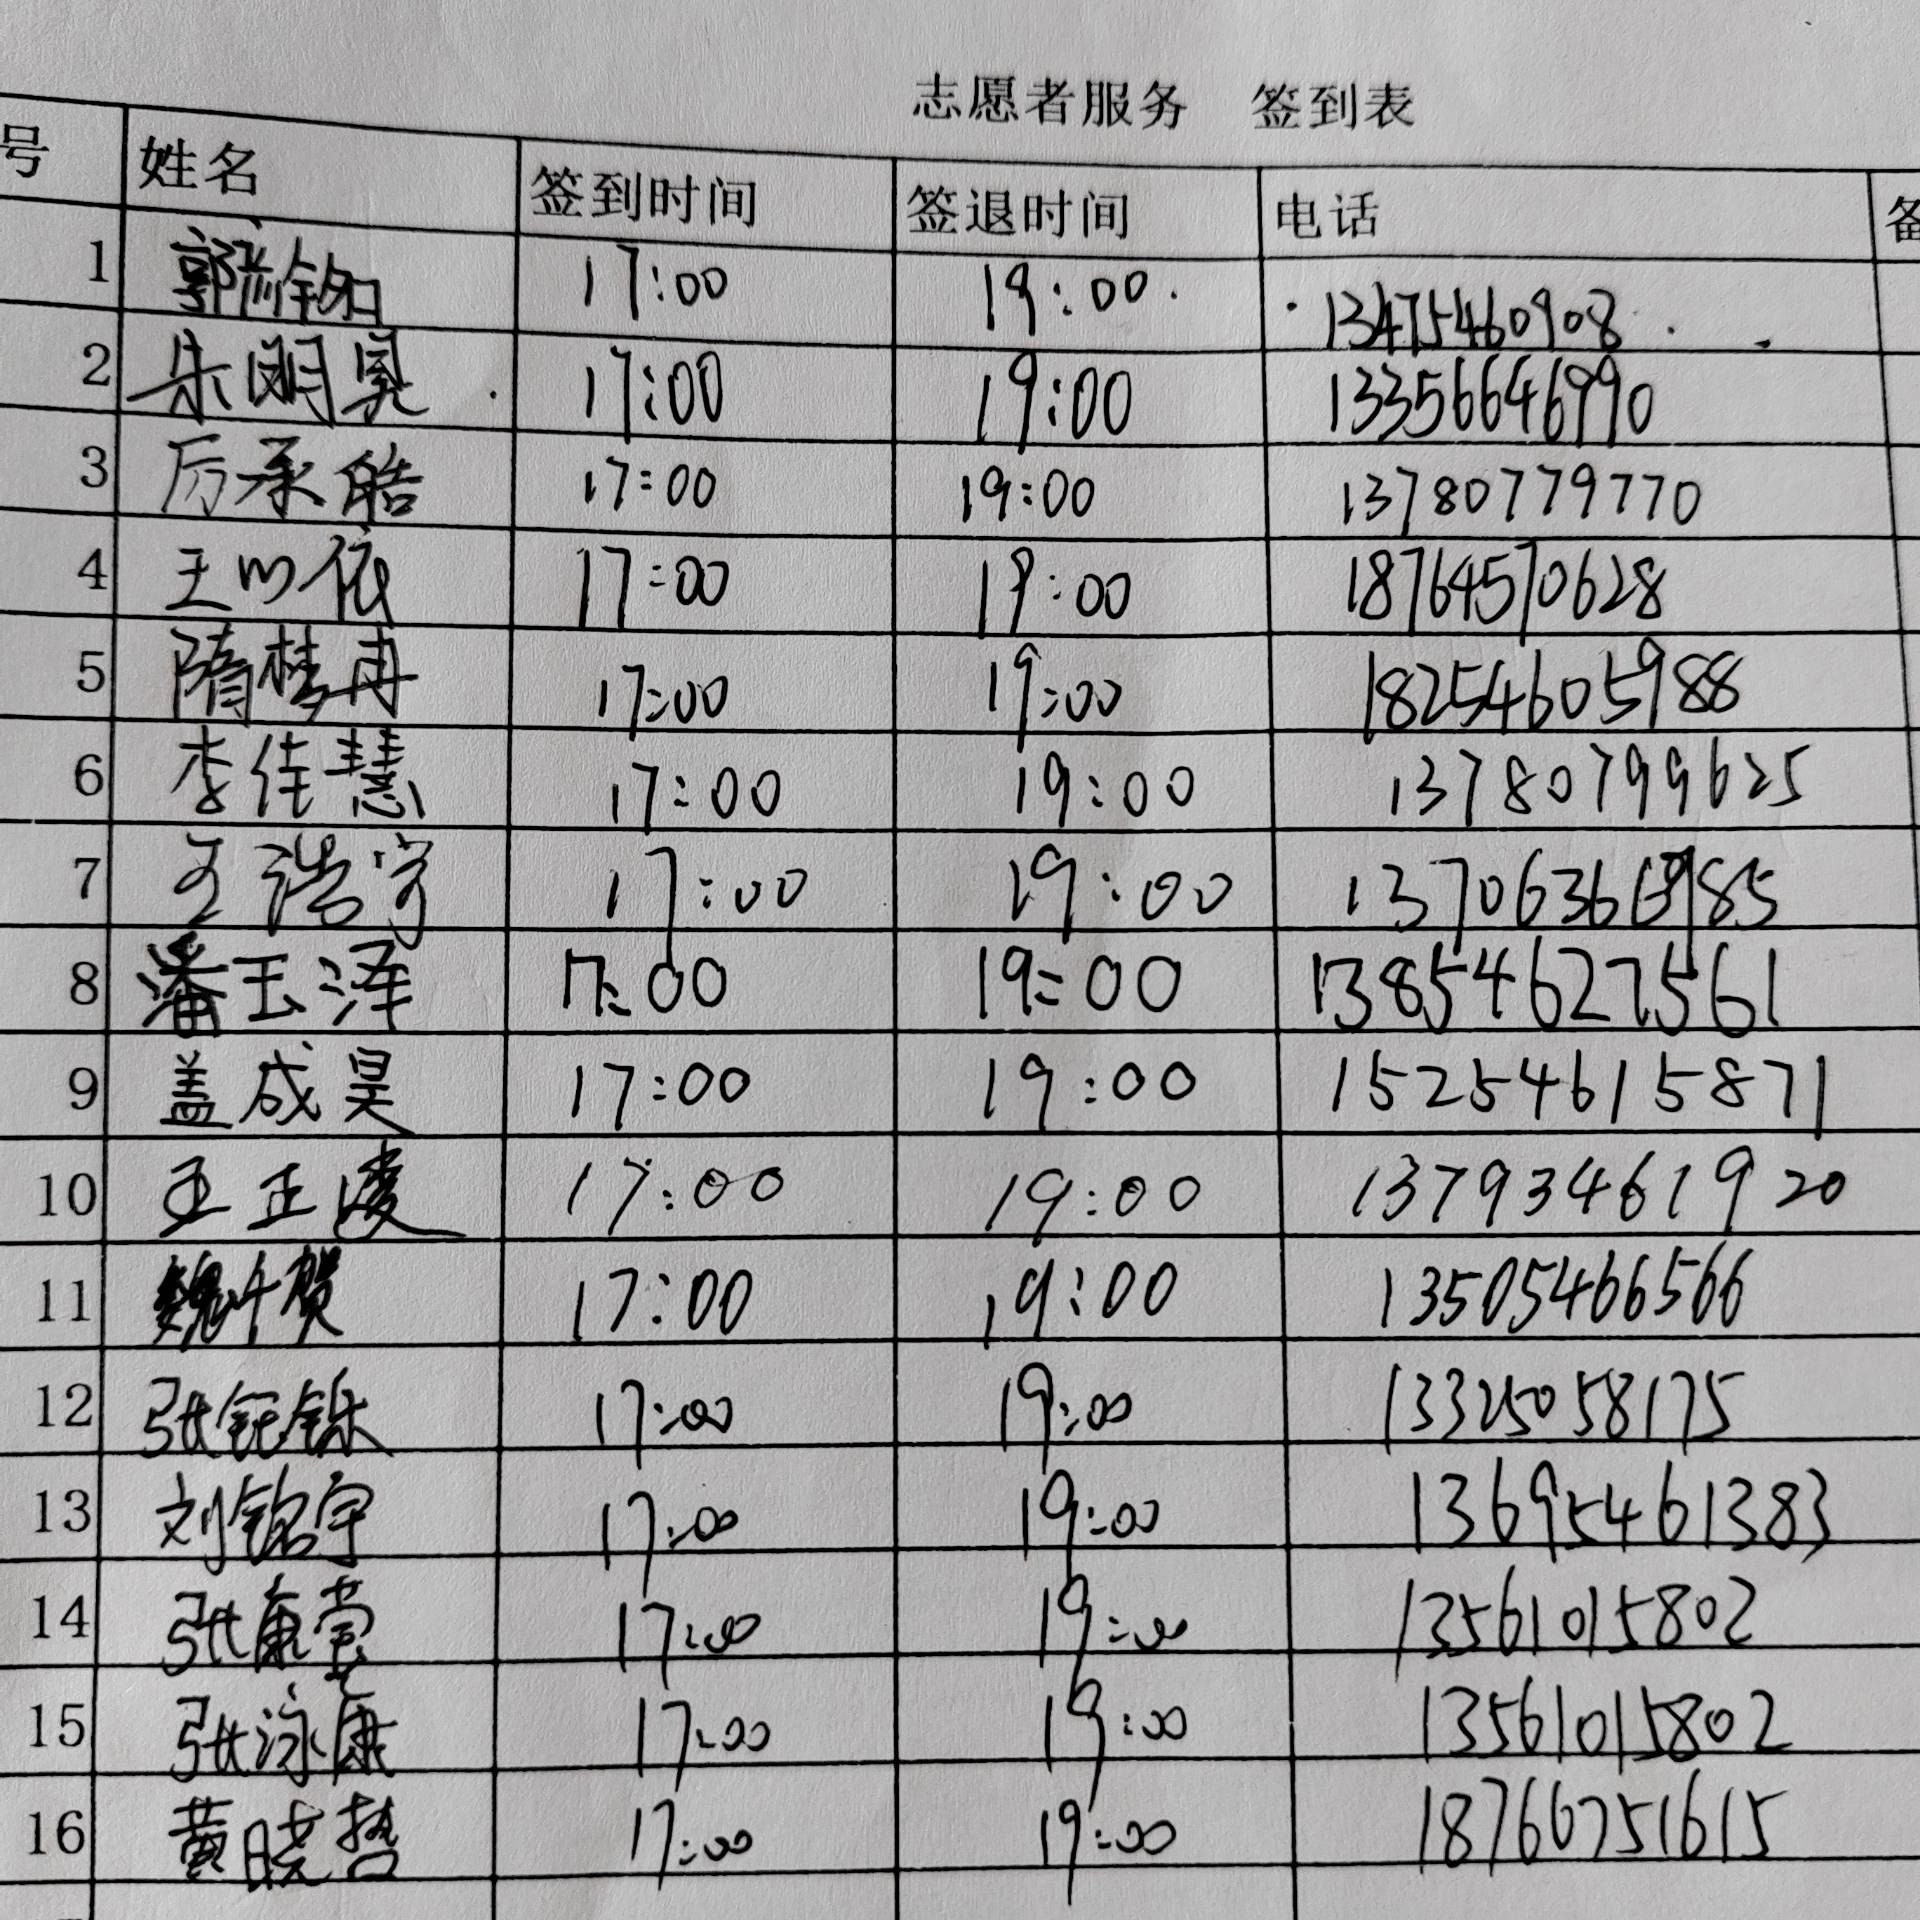 志愿者服务 签到表
号 姓名 签到时间 签退时间 电话 备
1 17:00 19:00 13475460908
2 朱明昊 17:00 19:00 13356646990
3 厉承皓 17:00 19:00 13780779770
4 王以依 17:00 19:00 18764570628
5 隋梦冉 17:00 19:00 18254605988
6 李佳慧 17:00 19:00 13780799625
7 王浩宇 17:00 19:00
8 潘玉泽 17:00 19:00 13854627561
9 盖成昊 17:00 19:00 15254615871
10 王正凌 17:00 19:00 13793461920
11 魏千贺 17:00 19:00 13505466566
12 17:00 19:00 13325058175
13 刘铭宇 17:00 19:00 13695461383
14 张康莹 17:00 19:00 13561015802
15 张泳康 17:00 19:00 13561015802
16 黄晓哲 17:00 19:00 18766751615